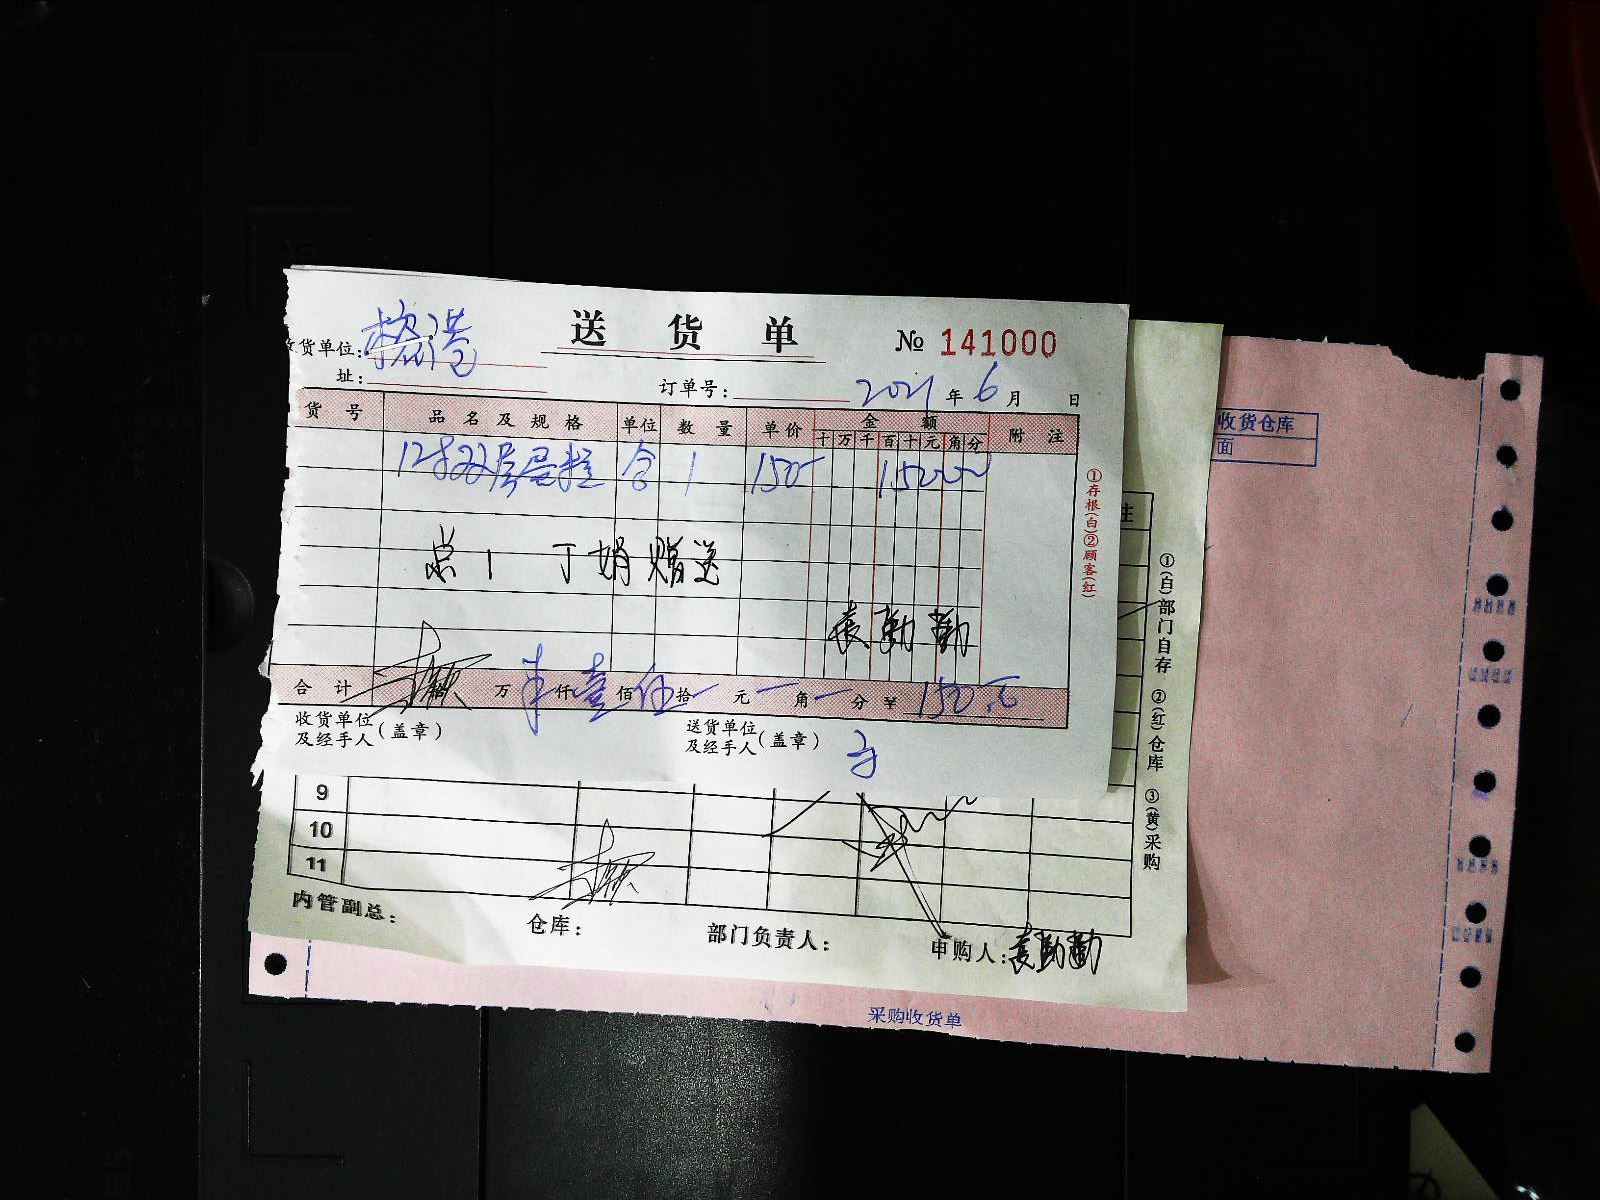 送货单 № 141000
货单位: 榕港
址: 订单号: 2021年6月 日
货号 品名及规格 单位 数量 单价 金额 附注
十万千百十元角分
12寸双层蛋糕 合 1 150 15000
总1 丁娟赠送
袁勤勤
合计 万 仟壹佰伍拾 元 角 分 ¥ 150元
收货单位及经手人(盖章) 送货单位及经手人(盖章)
①存根(白)②顾客(红)
注
①(白)部门自存 ②(红)仓库 ③(黄)采购
9
10
11
内管副总: 仓库: 部门负责人: 申购人: 袁勤勤
收货仓库
面
采购收货单